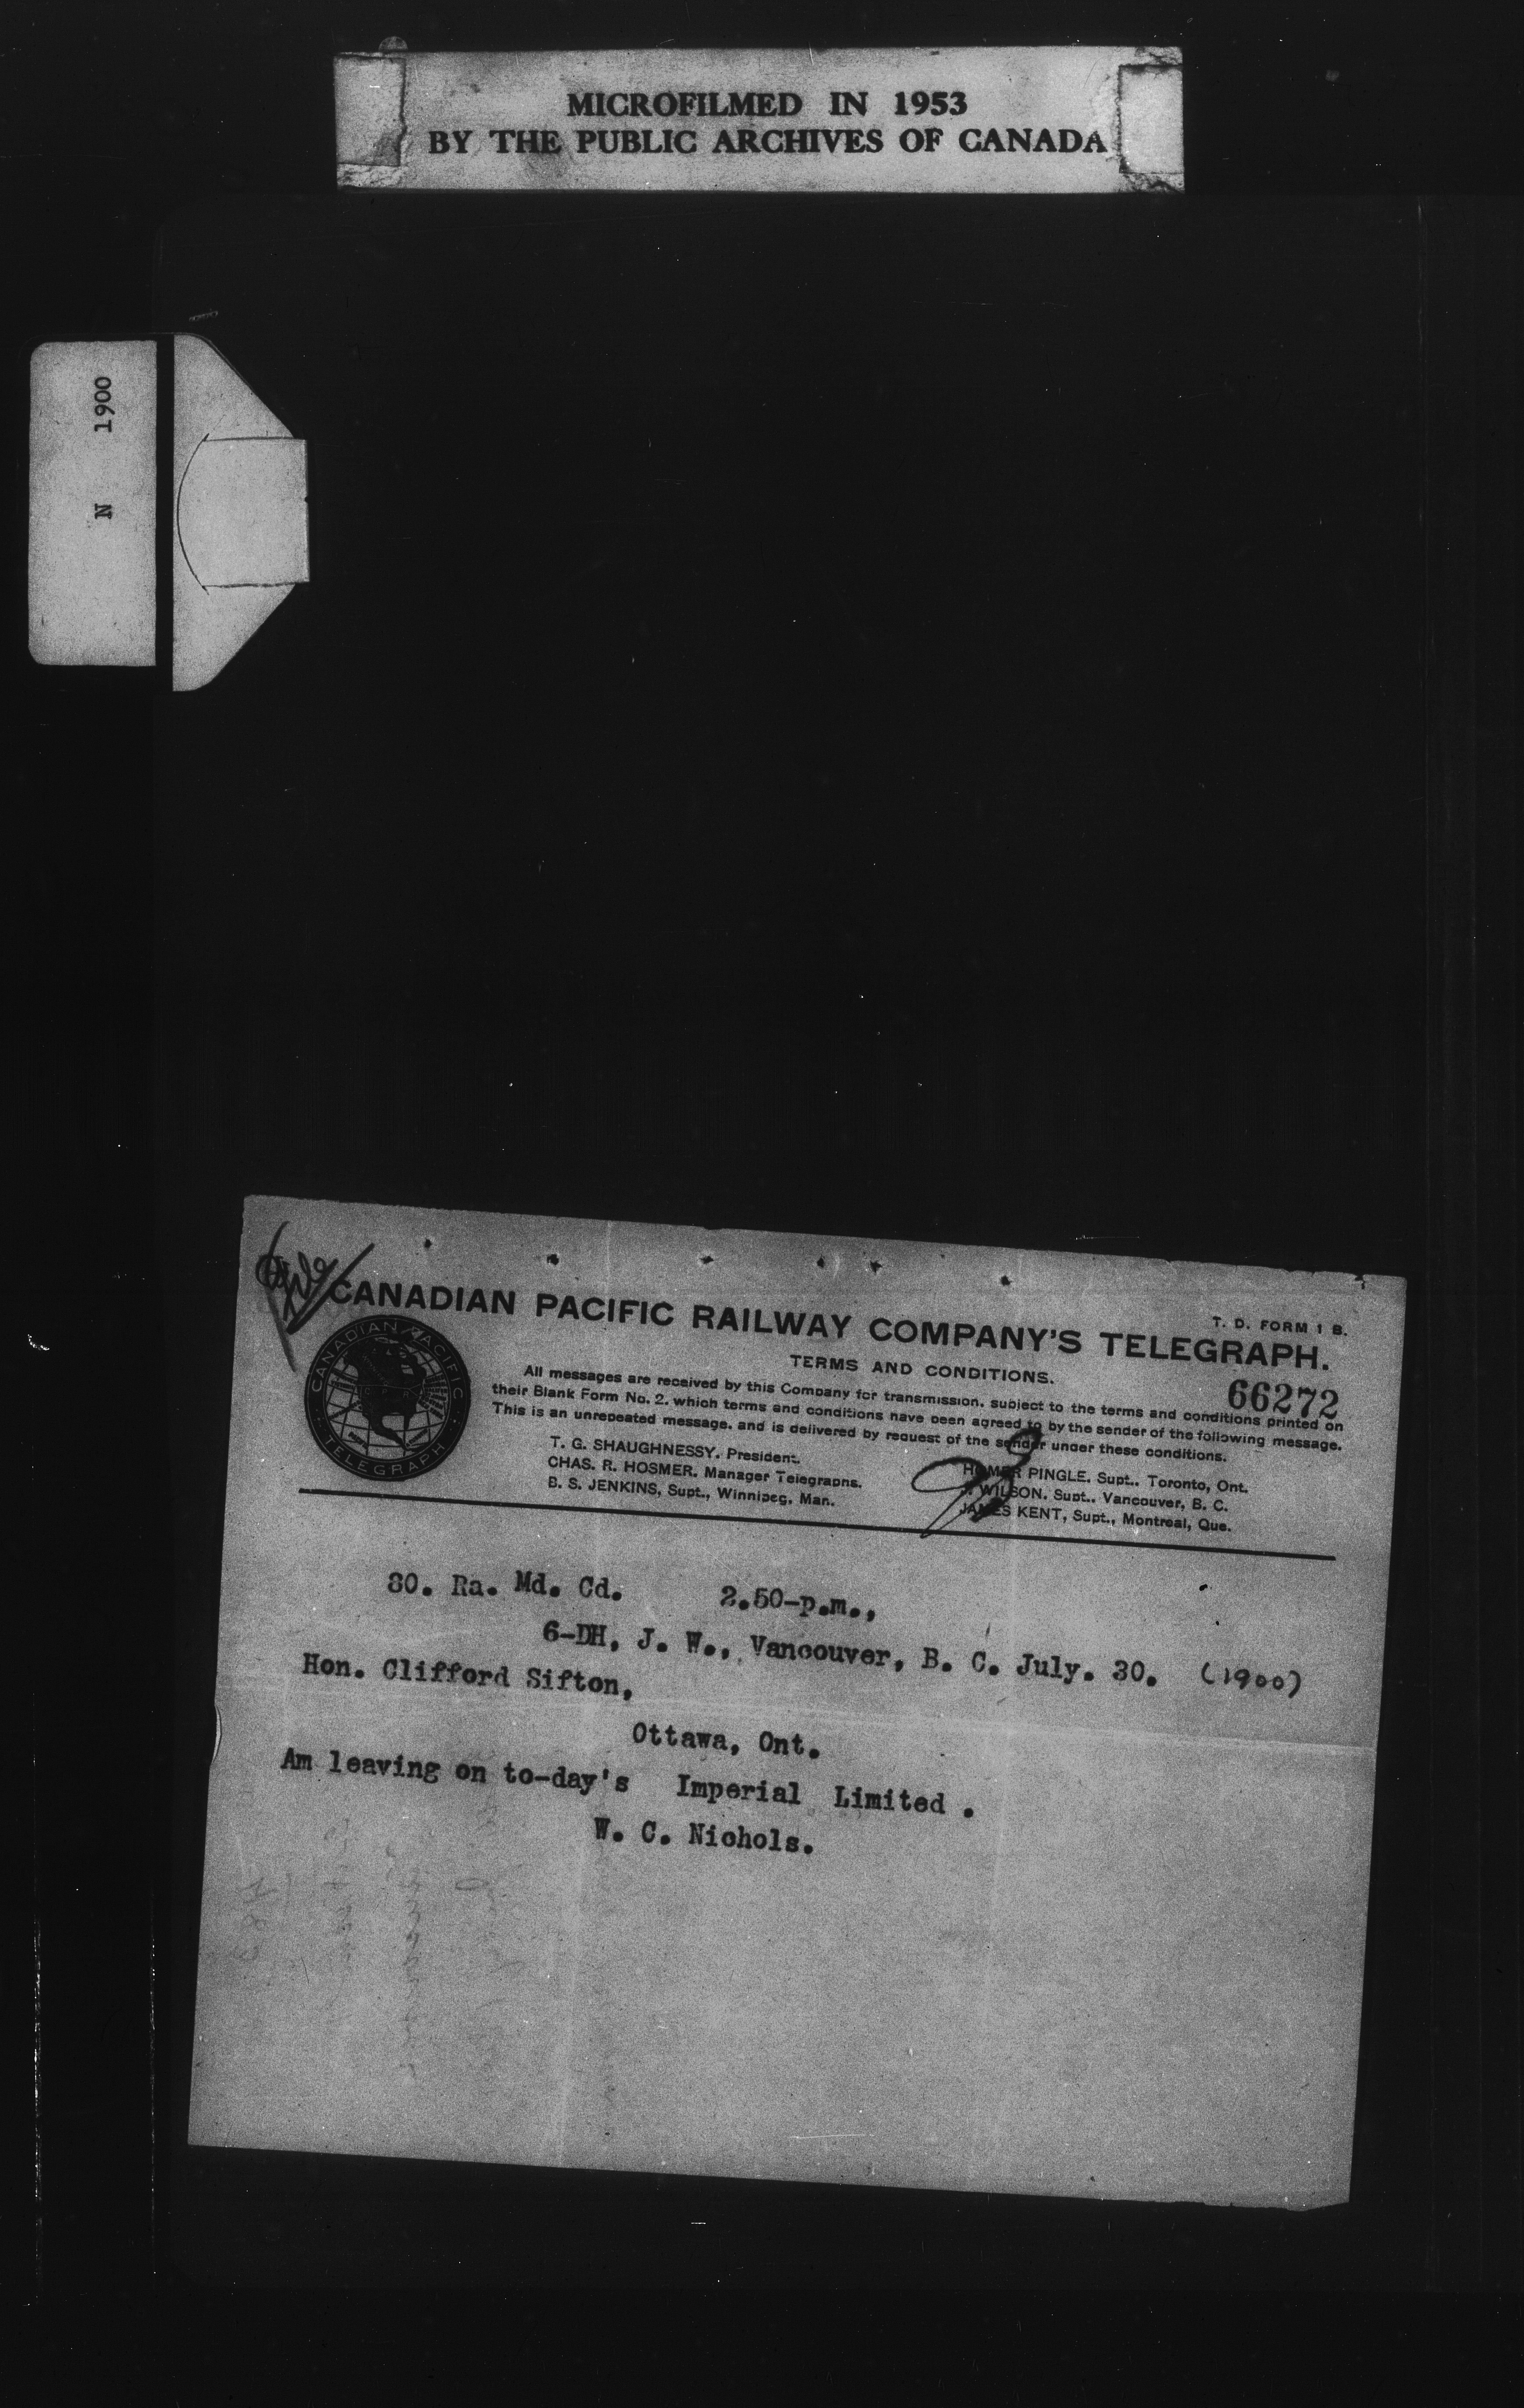 MICROFILMED IN 1953
BY THE PUBLIC ARCHIVES OF CANADA
N 1900
CANADIAN PACIFIC RAILWAY COMPANY'S TELEGRAPH.
T. D. FORM 1 B.
CANADIAN PACIFIC
TELEGRAPH
TERMS AND CONDITIONS.
66272
All messages are received by this Company for transmission, subject to the terms and conditions printed on
their Blank Form No. 2, which terms and conditions have been agreed to by the sender of the following message.
This is an unrepeated message, and is delivered by request of the sender under these conditions.
T. G. SHAUGHNESSY, President.
CHAS. R. HOSMER, Manager Telegraphs.
B. S. JENKINS, Supt., Winnipeg, Man.
HOMER PINGLE, Supt., Toronto, Ont.
J. WILSON, Supt., Vancouver, B. C.
JAMES KENT, Supt., Montreal, Que.
30. Ra. Md. Cd. 2.50-p.m.,
6-DH, J. W., Vancouver, B. C. July. 30. (1900)
Hon. Clifford Sifton,
Ottawa, Ont.
Am leaving on to-day's Imperial Limited .
W. C. Nichols.